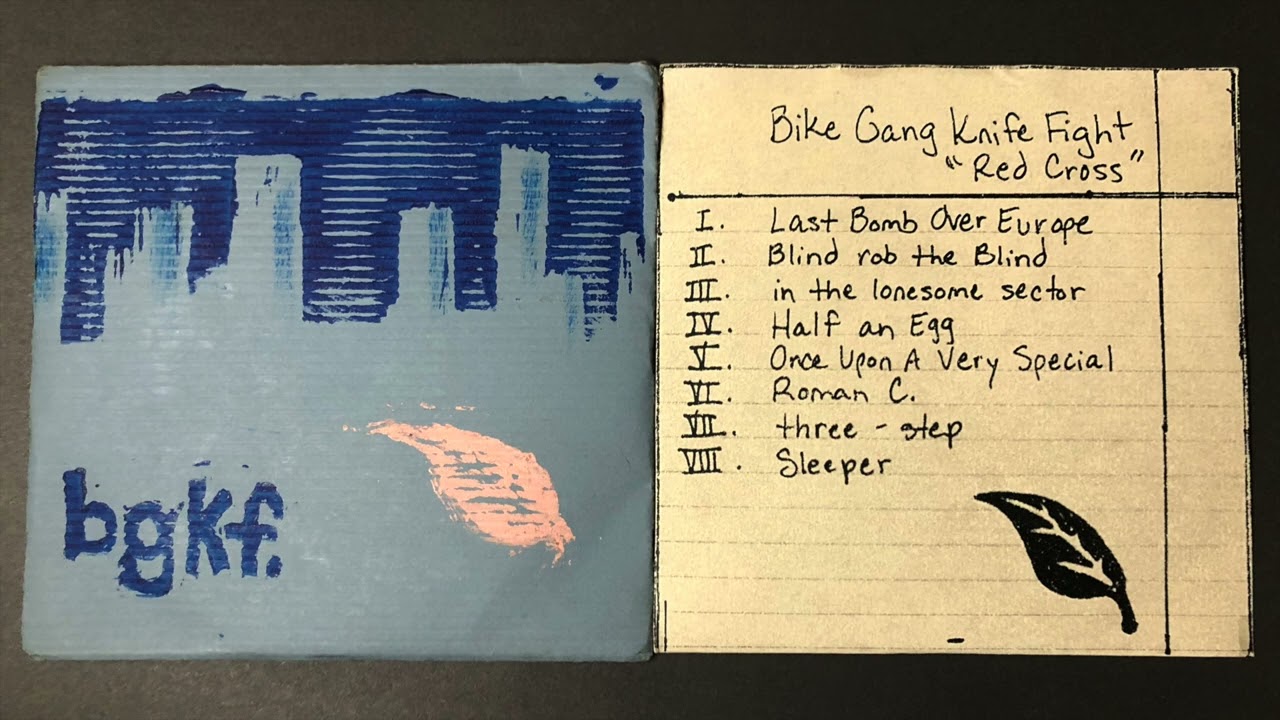 bgkf.
Bike Gang Knife Fight
"Red Cross"
I. Last Bomb Over Europe
II. Blind rob the Blind
III. in the lonesome sector
IV. Half an Egg
V. Once Upon A Very Special
VI. Roman C.
VII. three - step
VIII. Sleeper